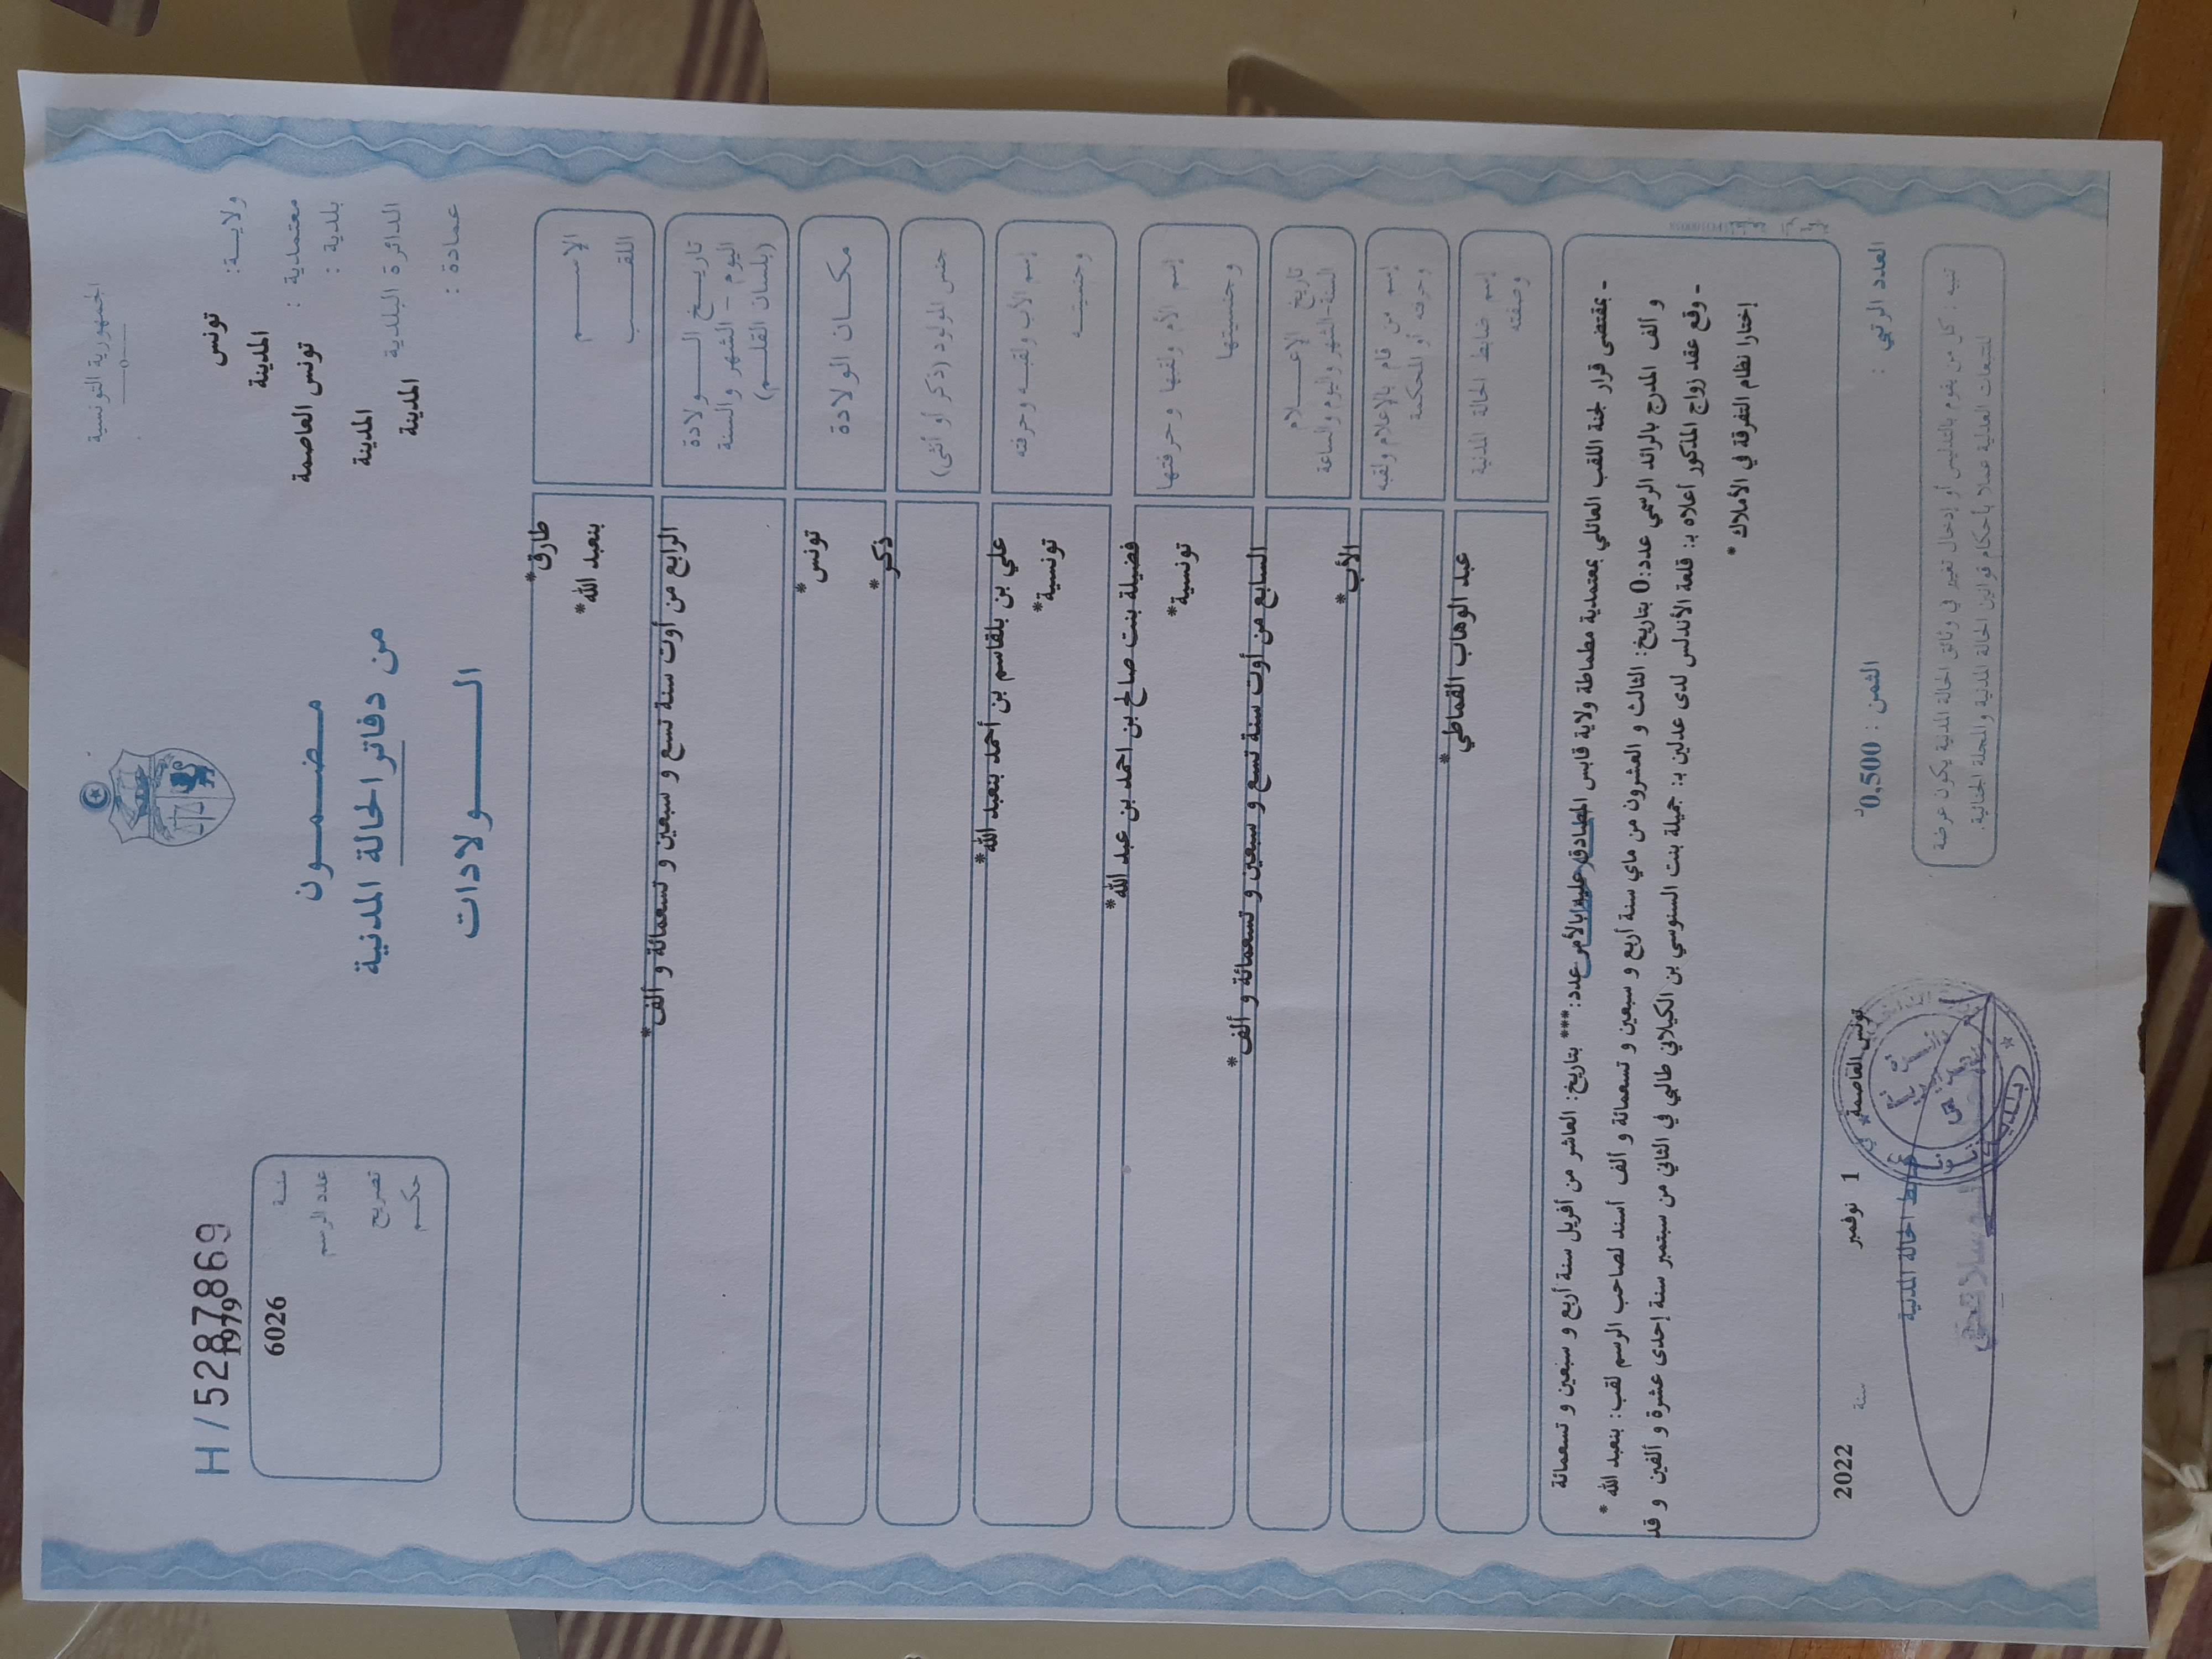 الجمهورية التونسية
ولايـــة: تونس
معتمدية : المدينة
بلدية : تونس العاصمة
الدائرة البلدية المدينة
عمادة : المدينة
مـضـمـون
من دفاتر الحالة المدنية
الـــولادات
H/5287869
سنة 1979
عدد الرسم 6026
تصريح
حكـم
الإســـم طارق*
اللقـــب بنعبد الله*
تاريـخ الــولادة الرابع من أوت سنة تسع و سبعين و تسعمائة و ألف*
اليوم - الشهر والسنة
(بلسان القلـم)
مكــان الولادة تونس*
جنس المولود (ذكر أو أنثى) ذكر*
إسم الأب ولقبـه وحرفته علي بن بلقاسم بن أحمد بنعبد الله*
وجنسيتـه تونسية*
إسم الأم ولقبها وحرفتها فضيلة بنت صالح بن احمد بن عبد الله*
وجنسيتها تونسية*
تاريخ الإعــلام السابع من أوت سنة تسع و سبعين و تسعمائة و ألف*
السنة-الشهر واليوم والساعة
إسم من قام بالإعلام ولقبه الأب*
وحرفته أو المحكمة
إسم ضابط الحالة المدنية عبد الوهاب القماطي*
وصفته
- بمقتضى قرار لجنة اللقب العائلي بمعتمدية مطماطة ولاية قابس المصادق عليه بالأمر عدد: *** بتاريخ: العاشر من أفريل سنة أربع و سبعين و تسعمائة
و ألف المدرج بالرائد الرسمي عدد:0 بتاريخ: الثالث و العشرون من ماي سنة أربع و سبعين و تسعمائة و ألف أسند لصاحب الرسم لقب: بنعبد الله *
- وقع عقد زواج المذكور أعلاه بـ: قلعة الأندلس لدى عدلين بـ: جميلة بنت السنوسي بن الكيلاني طالبي في الثاني من سبتمبر سنة إحدى عشرة و ألفين و قد
إختارا نظام التفرقة في الأملاك *
العدد الرتبي :
الثمن : 0,500د
تونس العاصمة في 1 نوفمبر سنة 2022
ضابط الحالة المدنية
تنبيه : كل من يقوم بالتدليس أو إدخال تغيير في وثائق الحالة المدنية يكون عرضة
للتتبعات العدلية عملا بأحكام قوانين الحالة المدنية والمجلة الجنائية.